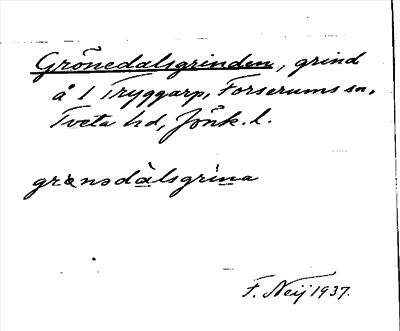 Grönedalsgrinden, grind
å 1 Tryggarp, Forserums sn,
Tveta hd, Jönk. l.
grænədàlsgrìna
F. Neij 1937.